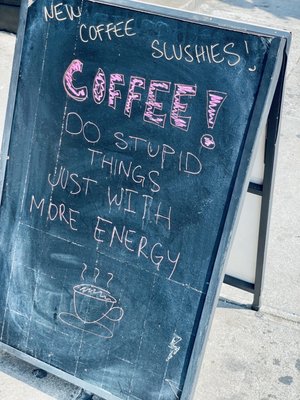 NEW
COFFEE
SLUSHIES!
COFFEE!
DO STUPID
THINGS
JUST WITH
MORE ENERGY